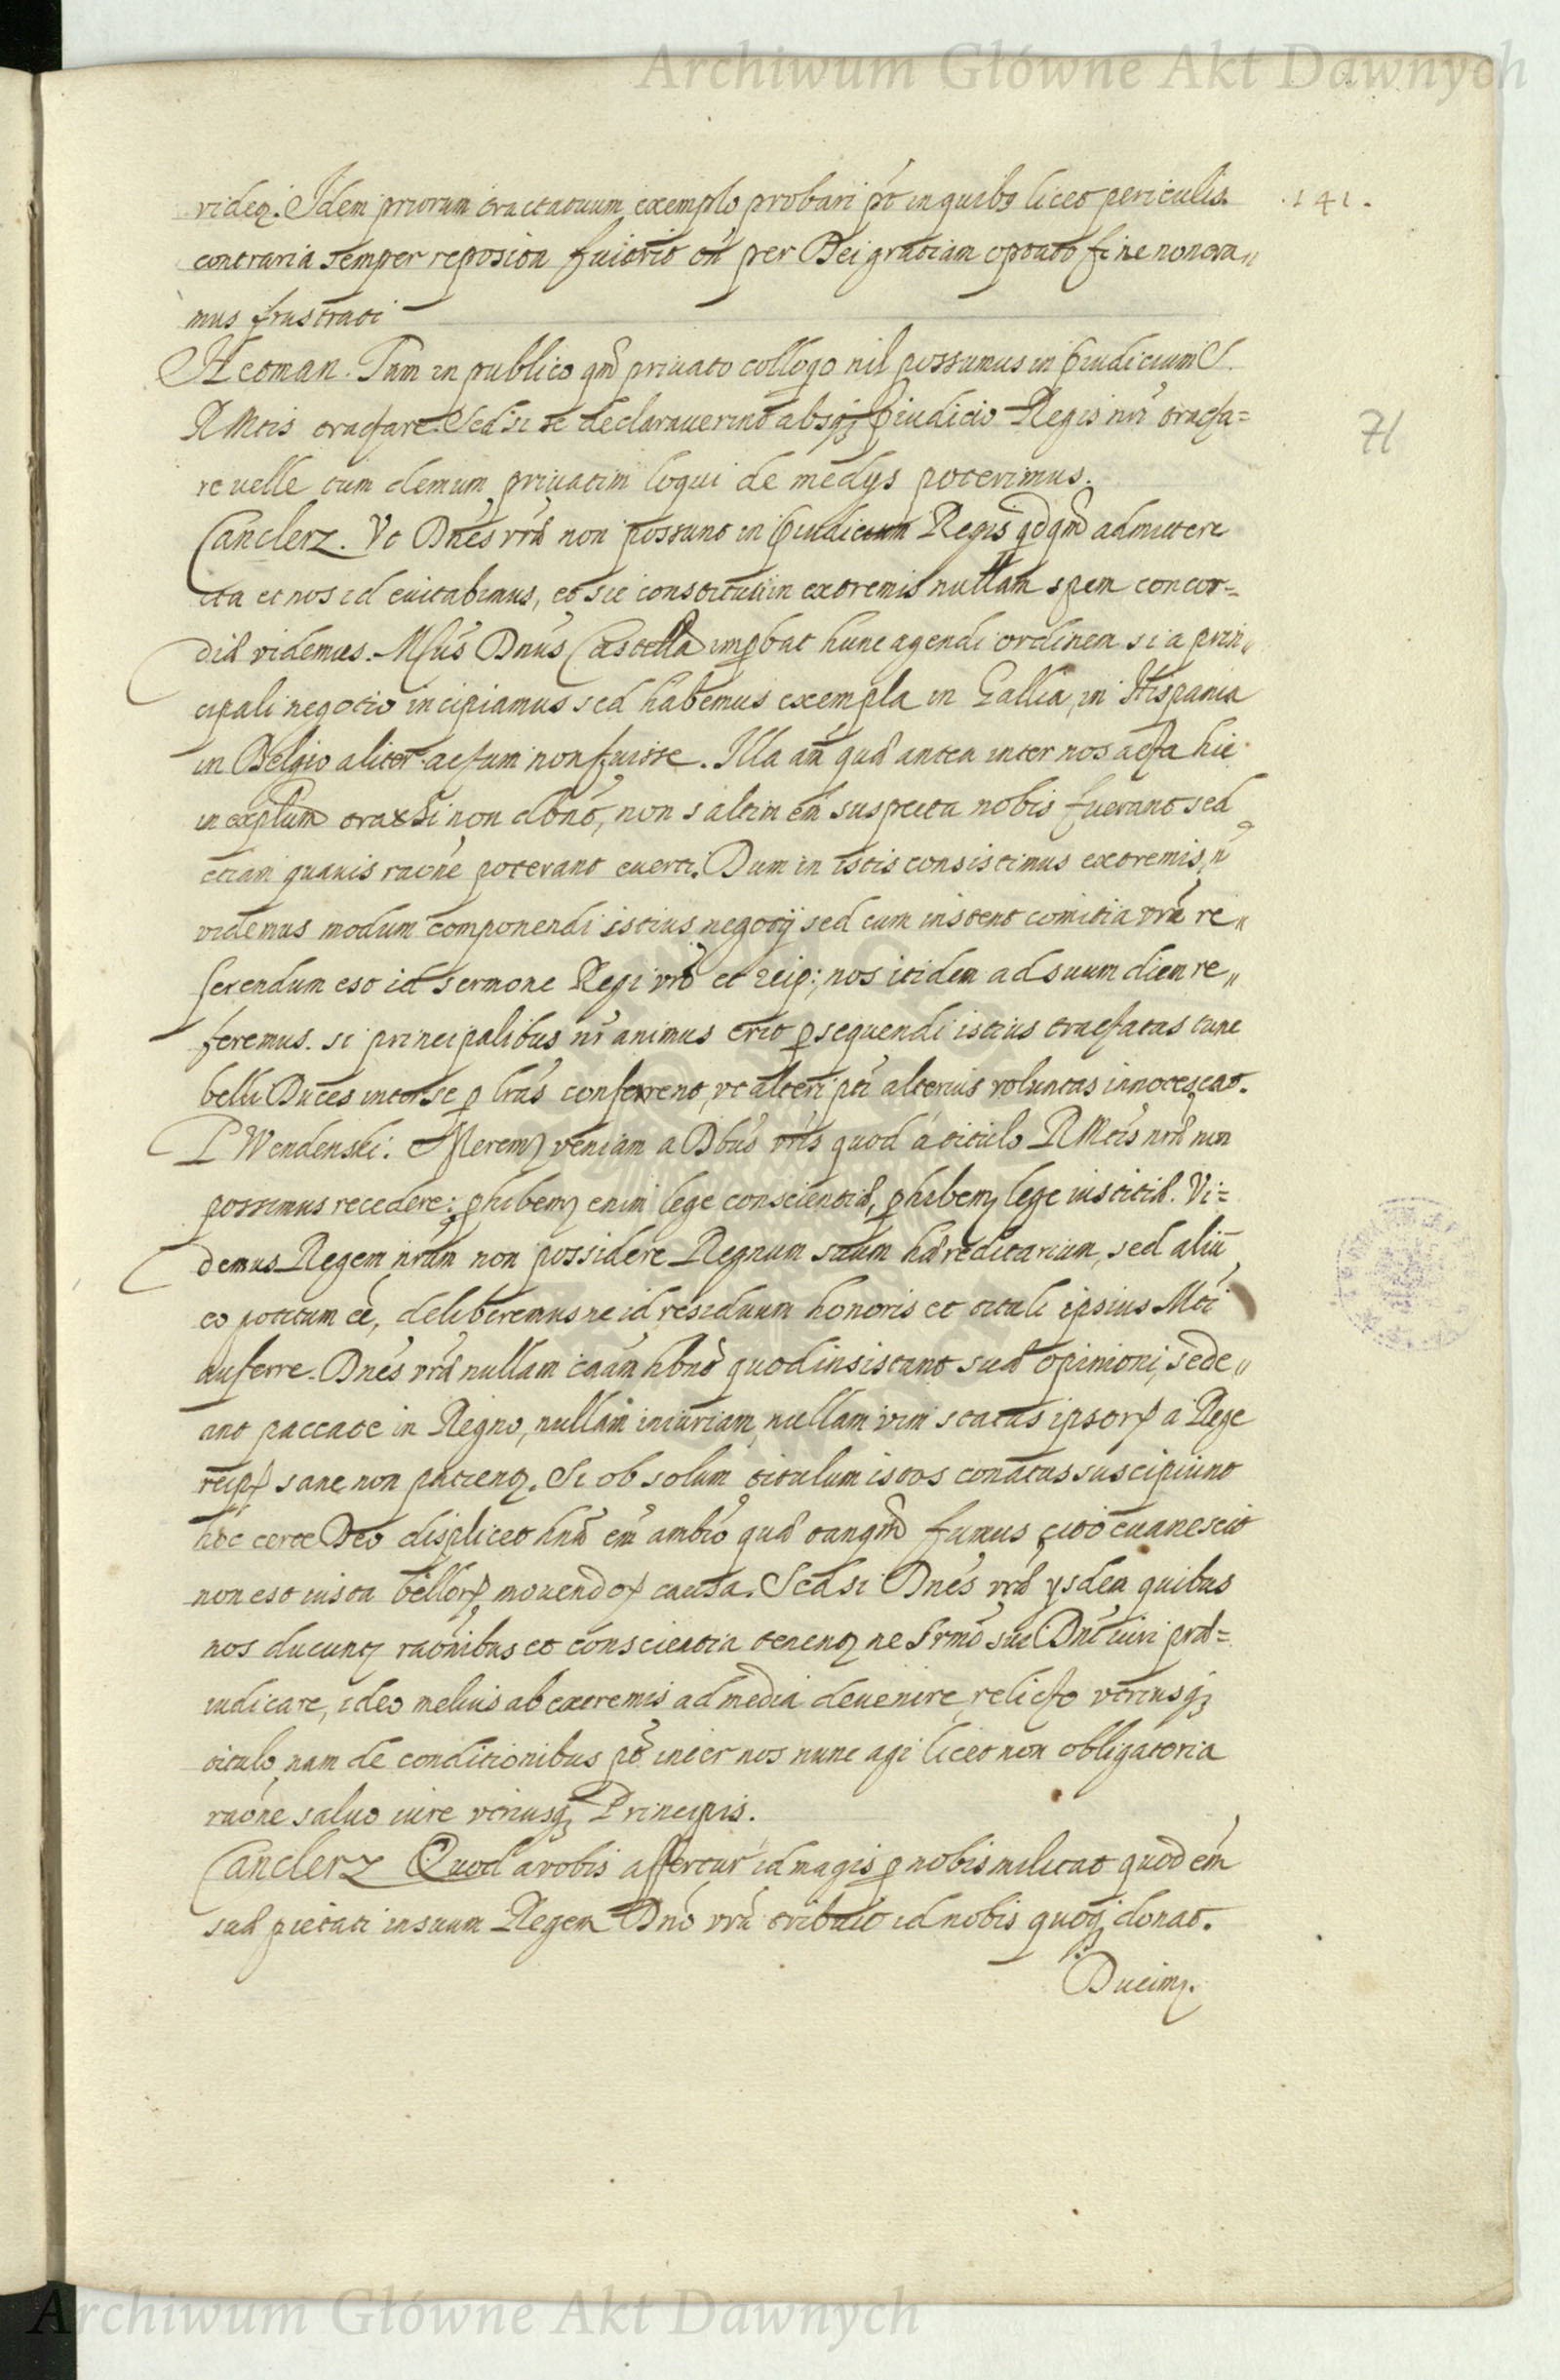 Archiwum Główne Akt Dawnych
videq. Idem priorum tractatuum exemplo probari pōt in quibȝ licet periculis .141.
contraria semper reposita fuit tn̄ per Dei gratiam optato fine non era„
mus frustrati
Hetman. Tam in publico qm̄ privato colloqo nil possumus in p̄iudicium S.
R Mtis tractare. Sed si se declaraverint absqȝ p̄iudicio Regis nr̄i tracta= 71
re velle tum demum privatim loqui de medys poterimus.
Canclerz. Vt Dn̄es vr̄ę non possunt in p̄iudicium Regis qdqm̄ admittere
ita et nos id evitabimus, et sic constituti in extremis nullam spem concor=
dię videmus. Mfus Dn̄us Castella improbat hunc agendi ordinem si a prin„
cipali negotio incipiamus sed habemus exempla in Gallia, in Hispania
in Belgio aliter actum non fuisse. Illa aūt quę antea inter nos acta hic
in exēplum traxti non dbn̄t, non saltim em̄ suspecta nobis fuerant sed
etiam quavis raōne poterant everti. Dum in istis consistimus extremis, n̄
videmus modum componendi istius negotij sed cum instent comitia vr̄a re„
ferendum est id sermone Regi vr̄o et reip:, nos itidem ad suum diem re„
feremus. si principalibus nr̄is animus erit ꝑsequendi istius tractatus tunc
belli Duces inter se ꝑ lrās conferrent, vt alteri pti alterius voluntas innotescat.
P Wendenski: Merem̄ veniam a Dbūs vr̄is quod á titulo RMtis nr̄ę non
possimus recedere: ꝓhibem̄ enim lege conscientię, ꝓhibem̄ lege iustitię. Vi=
demus Regem nr̄um non possidere Regnum suum hęreditarium, sed aliū
eo potitum eē, deliberemus ne id residuum honoris et tituli ipsius Mti
auferre. Dn̄es vr̄ę nullam caām hbn̄t quod insistant suę opinioni, sede„
ant paccate in Regno, nullam iniuriam, nullam vim status ipsorꝝ a Rege
reipꝝ sane non patienꝗ. Si ob solum titulum istos conatus suscipiunt
hoc certe Deo displicet hnā em̄ ambīo quę tanqm̄ fumus cito evanescit
non est iusta bellorꝝ movendoꝝ causa. Sed si Dn̄es vr̄ę ysdem quibus
nos ducunꝗ raōnibus et conscientia tenenꝗ ne Srmō suo Dnō iuri prę=
iudicare, ideo melius ab extremis ad media devenire, relicto vtriusqȝ
titulo, nam de conditionibus pōt inter nos nunc agi licet non obligatoria
raōne salvo iure vtriusqȝ Principis.
Canclerz Quod a vobis affertur id magis ꝓ nobis militat quod em̄
suę pietati in suum Regem Dnō vr̄a tribuit id nobis quoqȝ donat.
Ducimꝰ.
Archiwum Główne Akt Dawnych